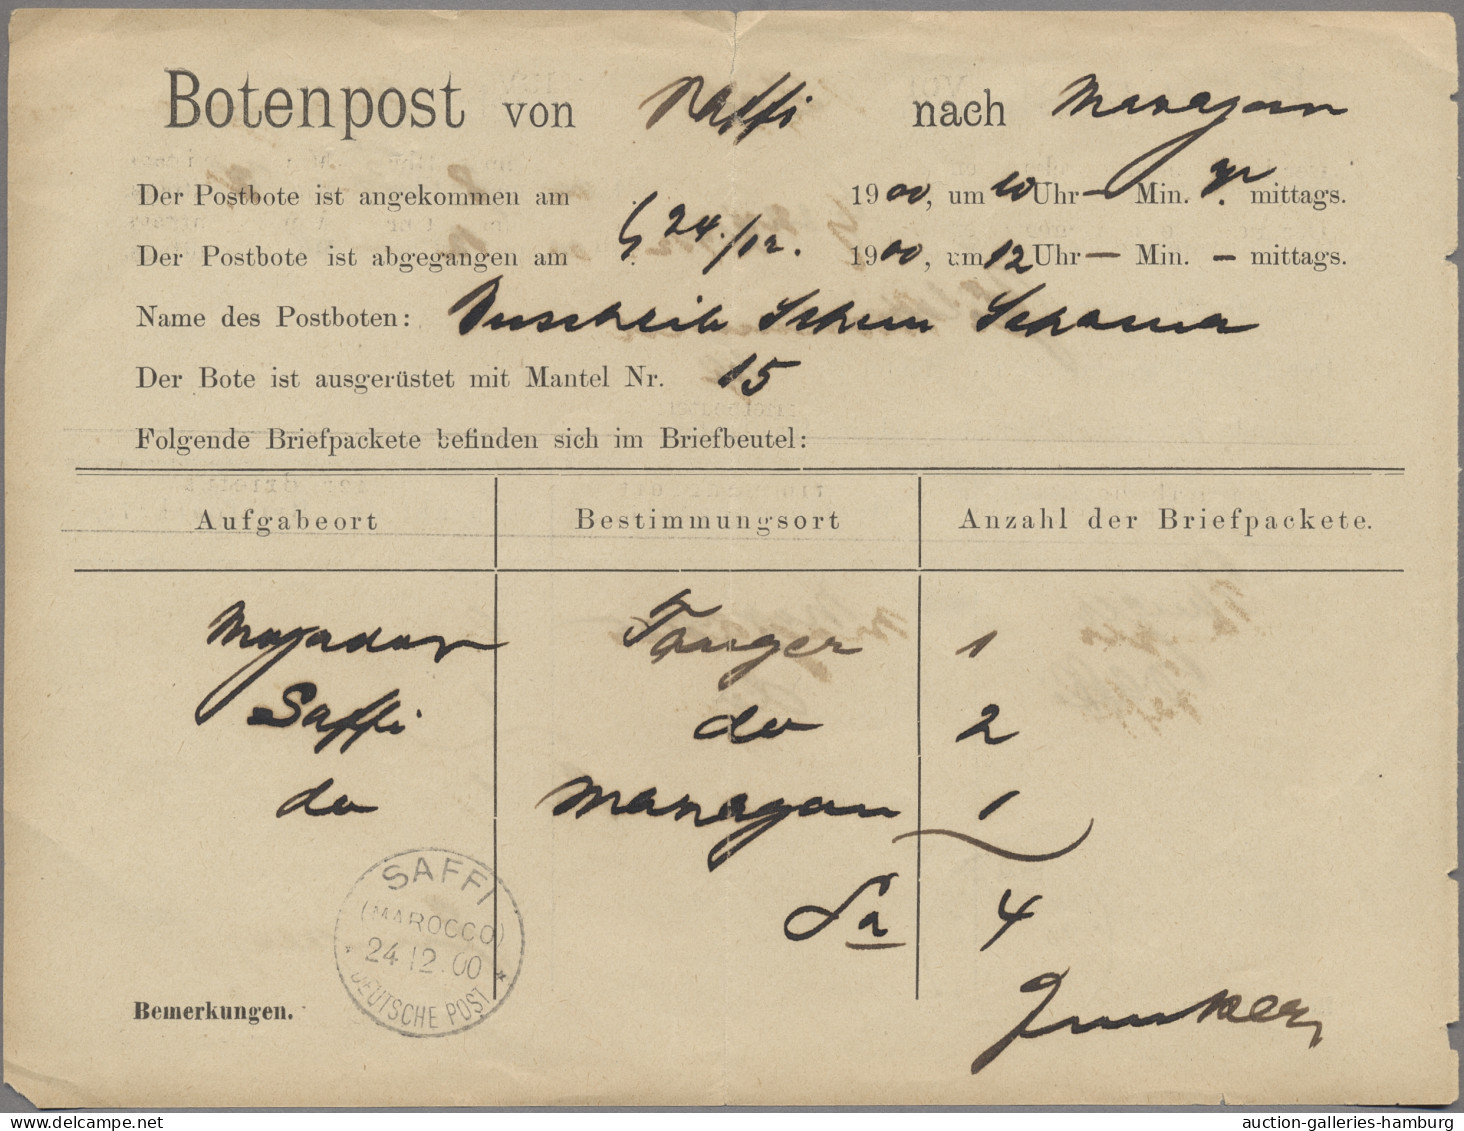 Botenpost von Saffi nach Mazagan
Der Postbote ist angekommen am 24./12. 1900, um 10 Uhr — Min. mittags.
Der Postbote ist abgegangen am 1900, um 12 Uhr — Min. — mittags.
Name des Postboten: Buscheib
Der Bote ist ausgerüstet mit Mantel Nr. 15
Folgende Briefpackete befinden sich im Briefbeutel:
Aufgabeort Bestimmungsort Anzahl der Briefpackete.
Mogador Tanger 1
Saffi do 2
do Mazagan 1
Sa 4
SAFFI
(MAROCCO)
24 12.00
* DEUTSCHE POST *
Bemerkungen.
auction-galleries-hamburg
www.delcampe.net